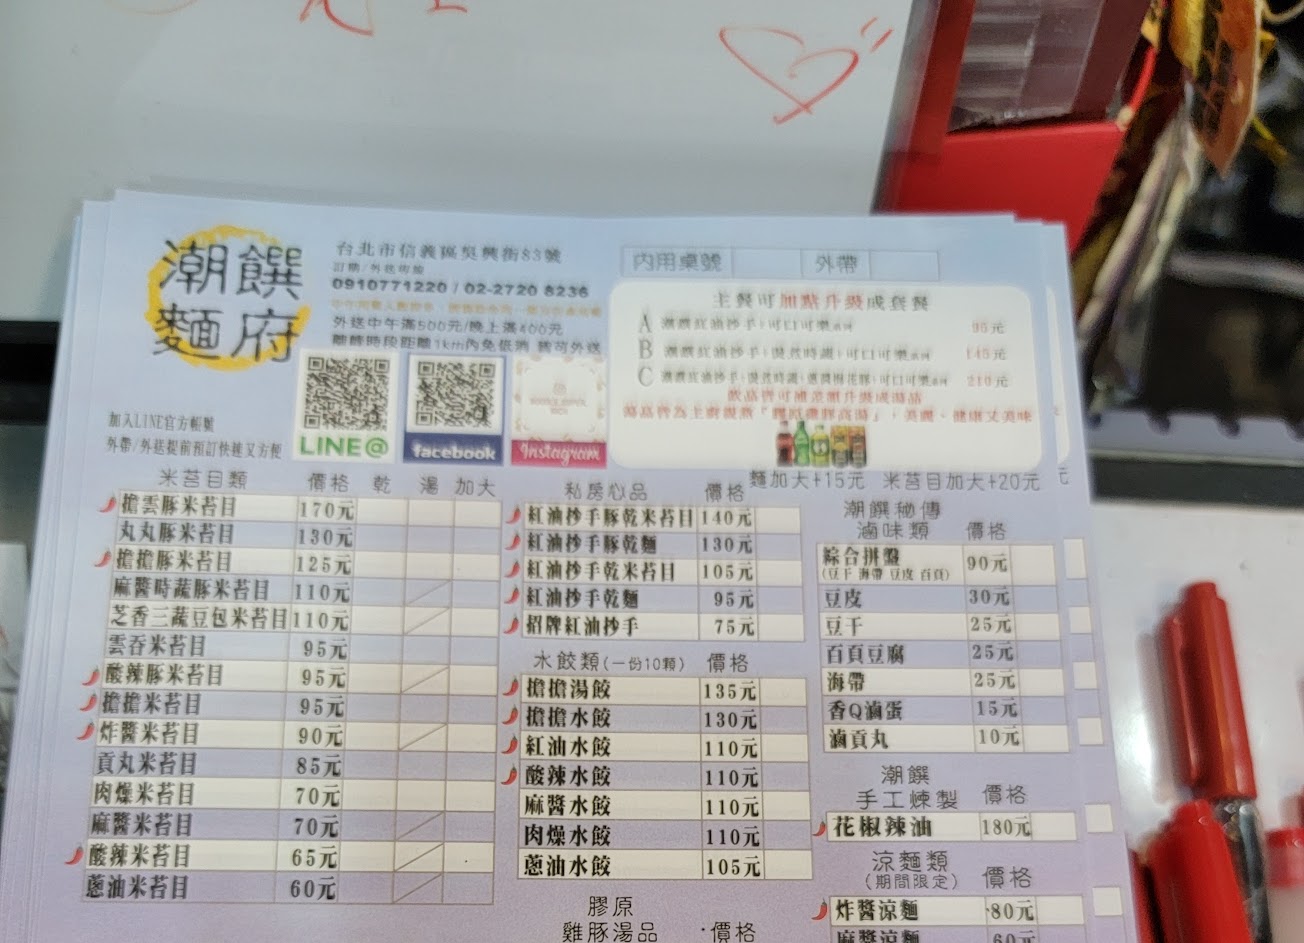 潮饌
麵府
台北市信義區吳興街83號
訂購/外送專線
0910771220 / 02-2720 8236
外送中午滿500元/晚上滿400元
離峰時段距離1km內免低消 皆可外送
加入LINE官方帳號
外帶/外送提前預訂快速又方便
LINE@
facebook
Instagram
內用桌號
外帶
主餐可加點升級成套餐
A 潮饌紅油抄手+可口可樂 95元
B 潮饌紅油抄手+燙煮時蔬+可口可樂 145元
C 210元
飲品皆可補差額升級成湯品
湯品皆為主廚慢熬「膠原雞豚高湯」,美麗、健康又美味
麵加大+15元 米苔目加大+20元
米苔目類 價格 乾 湯 加大
擔雲豚米苔目 170元
丸丸豚米苔目 130元
擔擔豚米苔目 125元
麻醬時蔬豚米苔目 110元
芝香三蔬豆包米苔目 110元
雲吞米苔目 95元
酸辣豚米苔目 95元
擔擔米苔目 95元
炸醬米苔目 90元
貢丸米苔目 85元
肉燥米苔目 70元
麻醬米苔目 70元
酸辣米苔目 65元
蔥油米苔目 60元
私房心品 價格
紅油抄手豚乾米苔目 140元
紅油抄手豚乾麵 130元
紅油抄手乾米苔目 105元
紅油抄手乾麵 95元
招牌紅油抄手 75元
水餃類(一份10顆) 價格
擔擔湯餃 135元
擔擔水餃 130元
紅油水餃 110元
酸辣水餃 110元
麻醬水餃 110元
肉燥水餃 110元
蔥油水餃 105元
膠原
雞豚湯品 價格
潮饌秘傳
滷味類 價格
綜合拼盤 90元
(豆干 海帶 豆皮 百頁)
豆皮 30元
豆干 25元
百頁豆腐 25元
海帶 25元
香Q滷蛋 15元
滷貢丸 10元
潮饌
手工煉製 價格
花椒辣油 180元
涼麵類
(期間限定) 價格
炸醬涼麵 80元
麻醬涼麵 60元